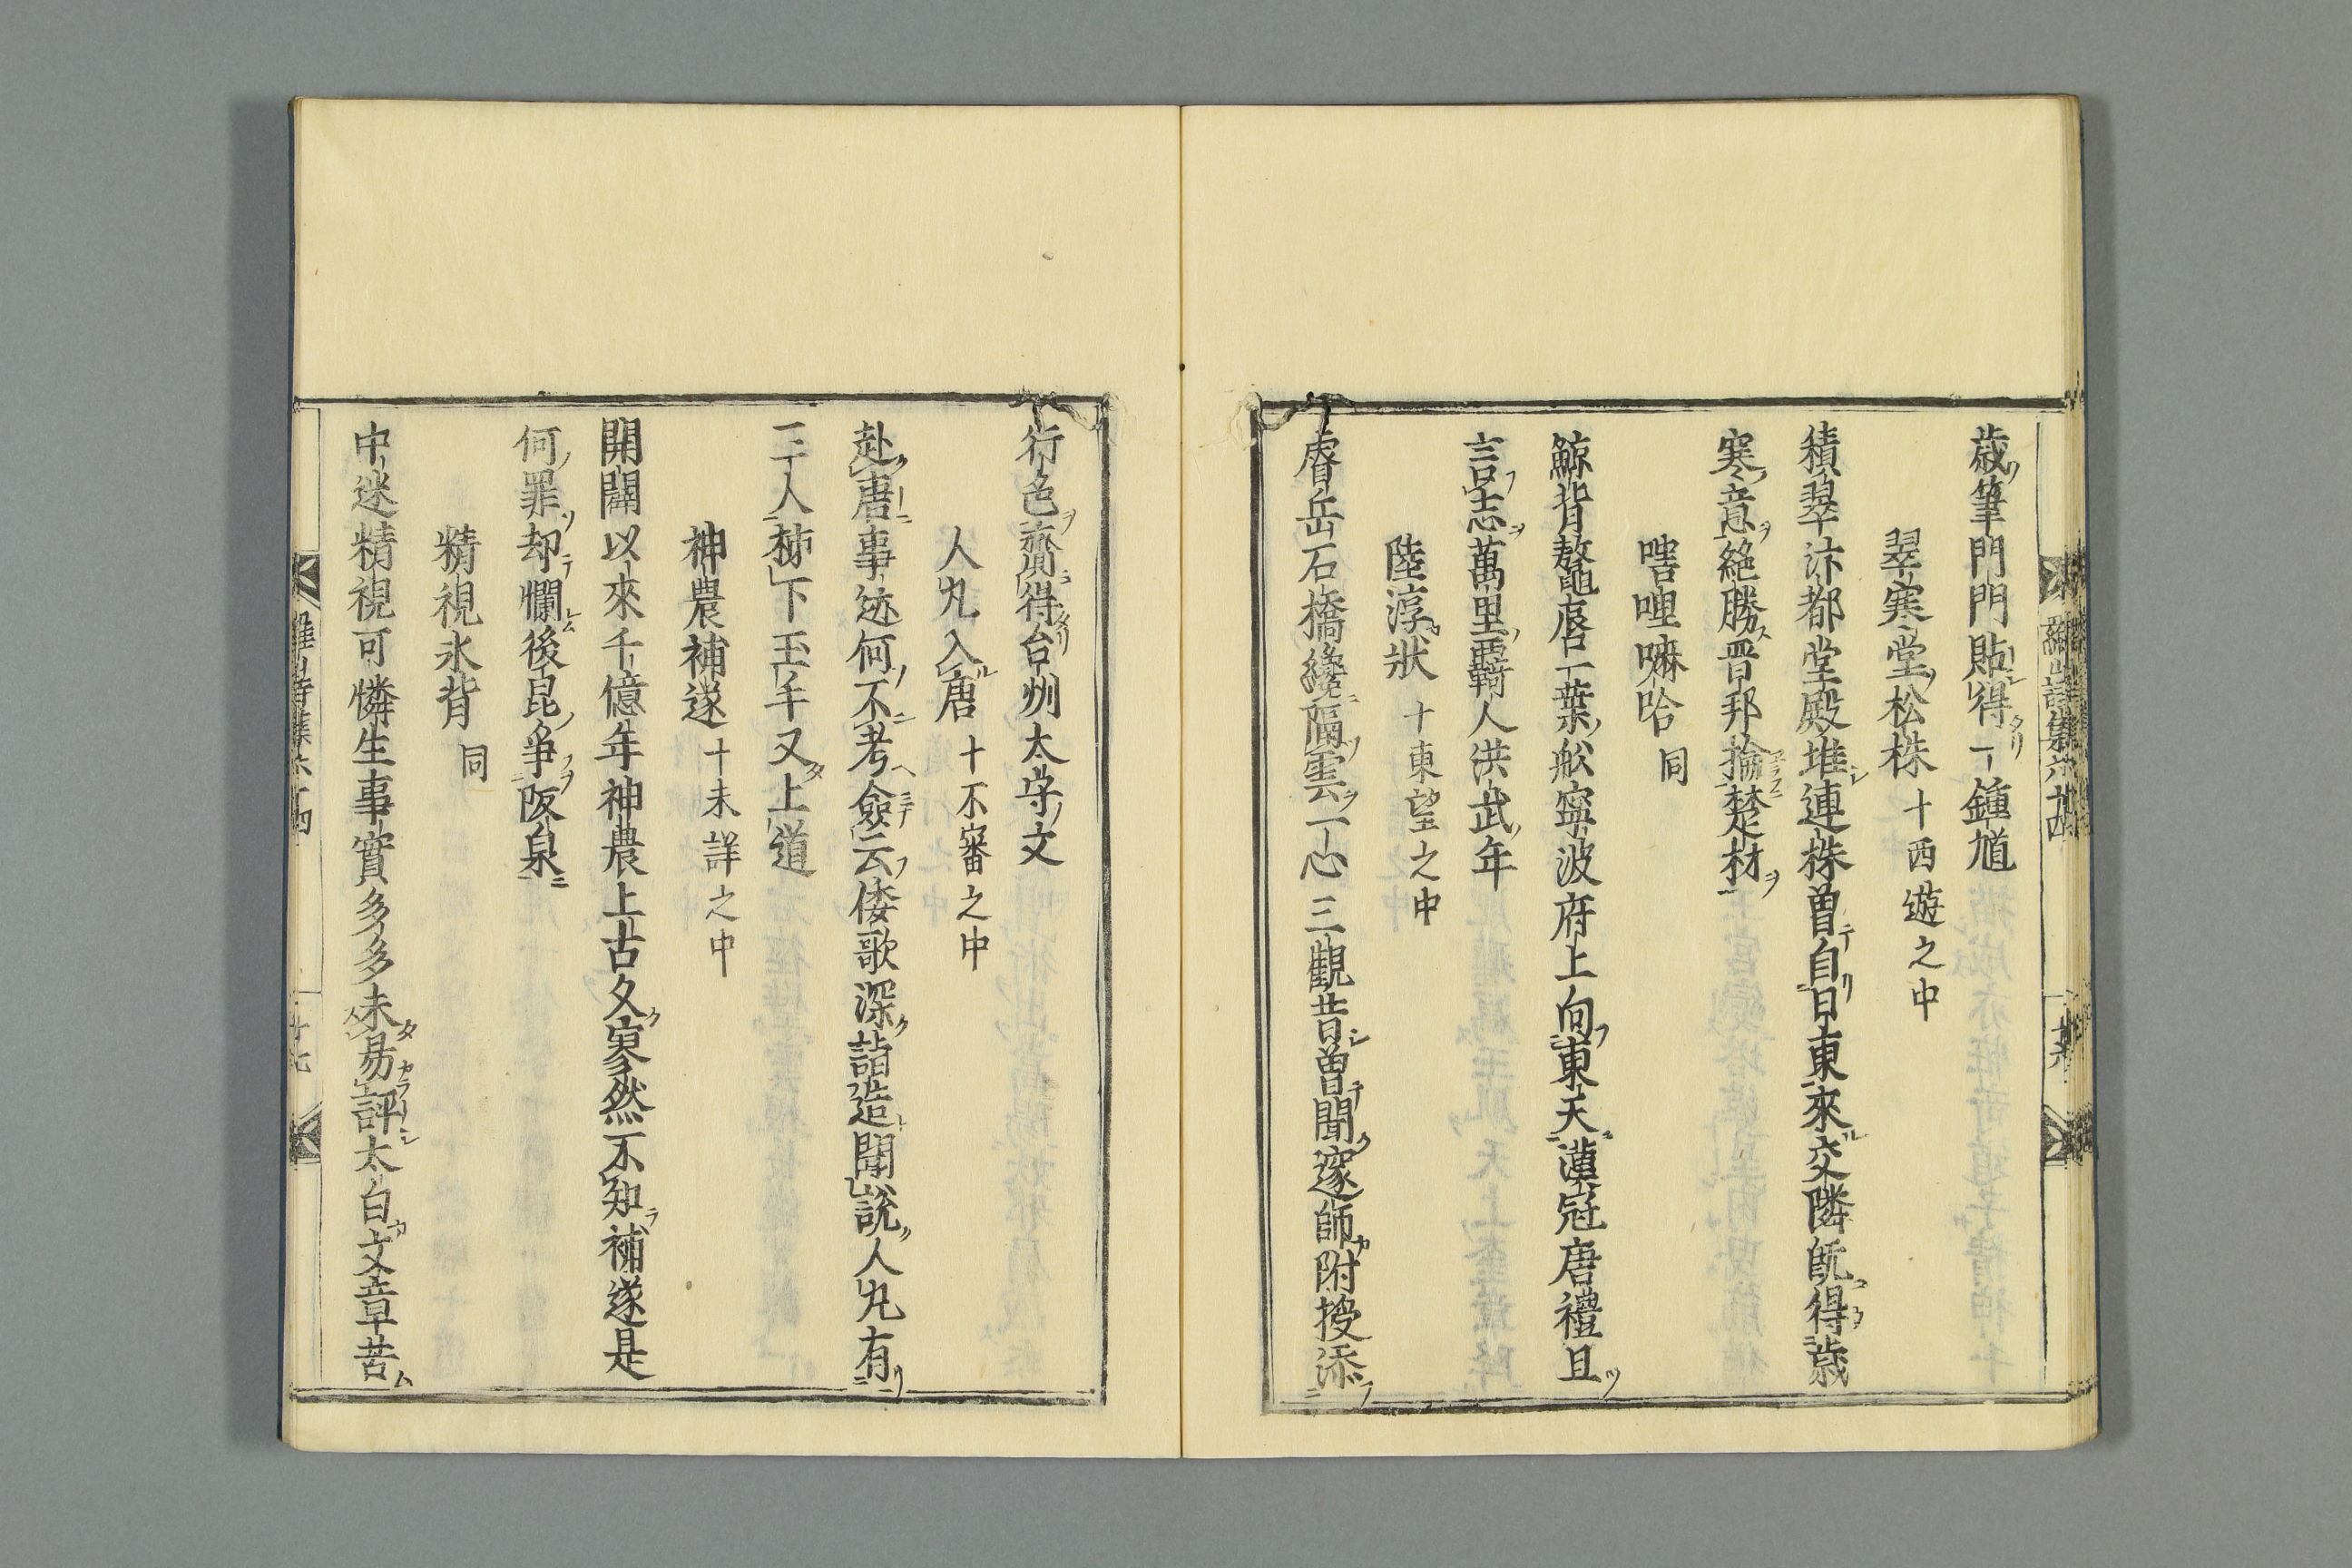 歳筆門門貼得一鍾馗
翠寒堂松株 十西遊之中
積翠汴都堂殿堆連株曽自日東來交隣既得歳
寒意絶勝晋邦掄楚材
嘧哩嘛哈 同
鯨背鼇唇一葉舩寧波府上向東天漢冠唐禮且
言志萬里覊人洪武年
陸淳狀 十東望之中
睿岳石橋纔隔雲一心三觀昔曽聞邃師附授添
行色齎得台州太守文
人丸入唐 十不審之中
赴唐事迹何不考僉云倭歌深詣造聞説人丸有
二人柹下王午又上道
神農補遂 十未詳之中
開闢以來千億年神農上古久寥然不知補遂是
何罪却爛後昆争阪泉
精視氷背 同
中迷精視可憐生事實多多未易評太白文章苦
羅山詩集六十四